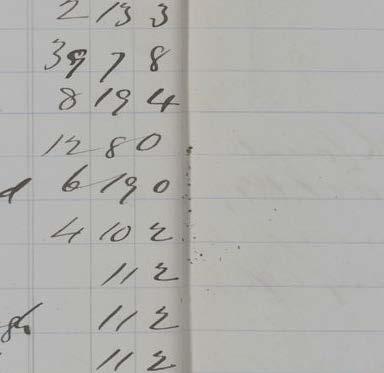 2 13 3
39 7 8
8 19 4
12 8 0
6 19 0
4 10 2
11 2
11 2
11 2